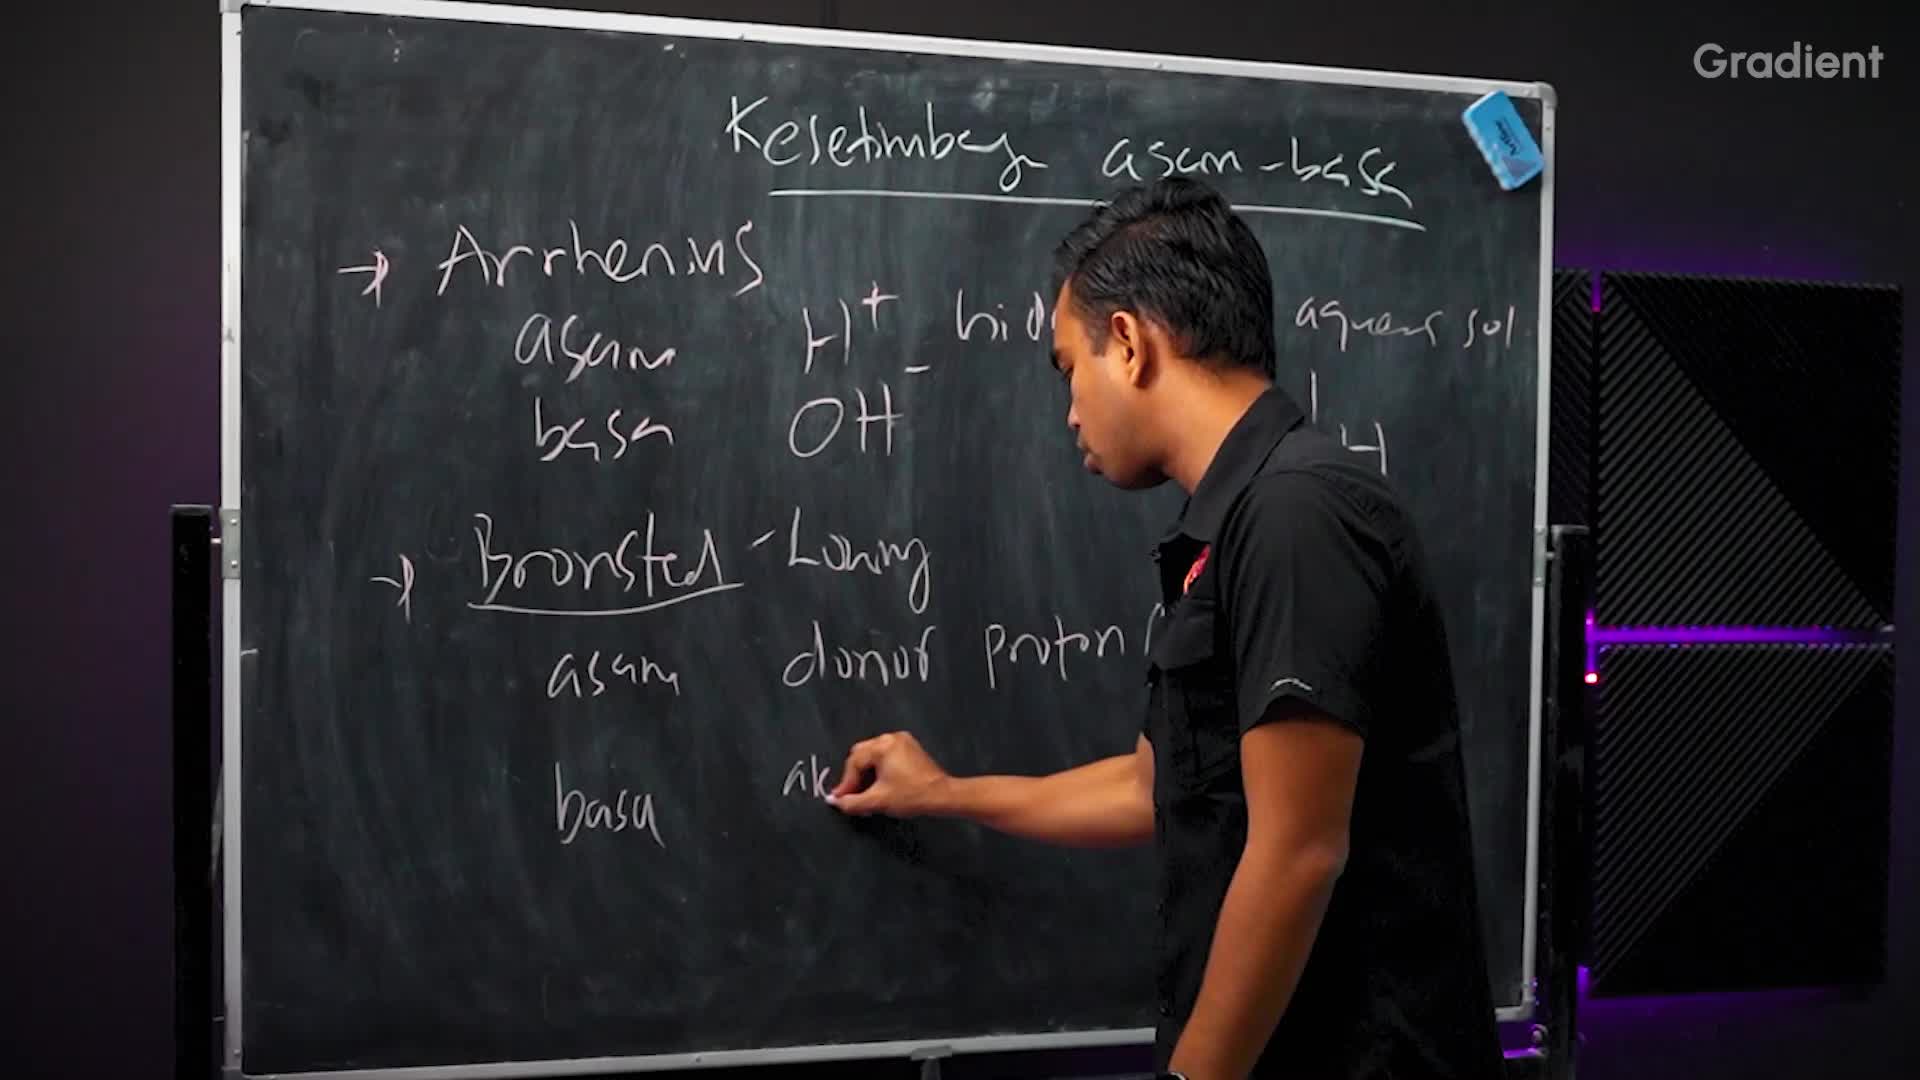 Gradient
Kesetimbangan asam-basa
→ Arrhenius
asam H⁺ hid aqueous sol.
basa OH⁻ H
→ Bronsted - Lowry
asam donor proton
basa ak